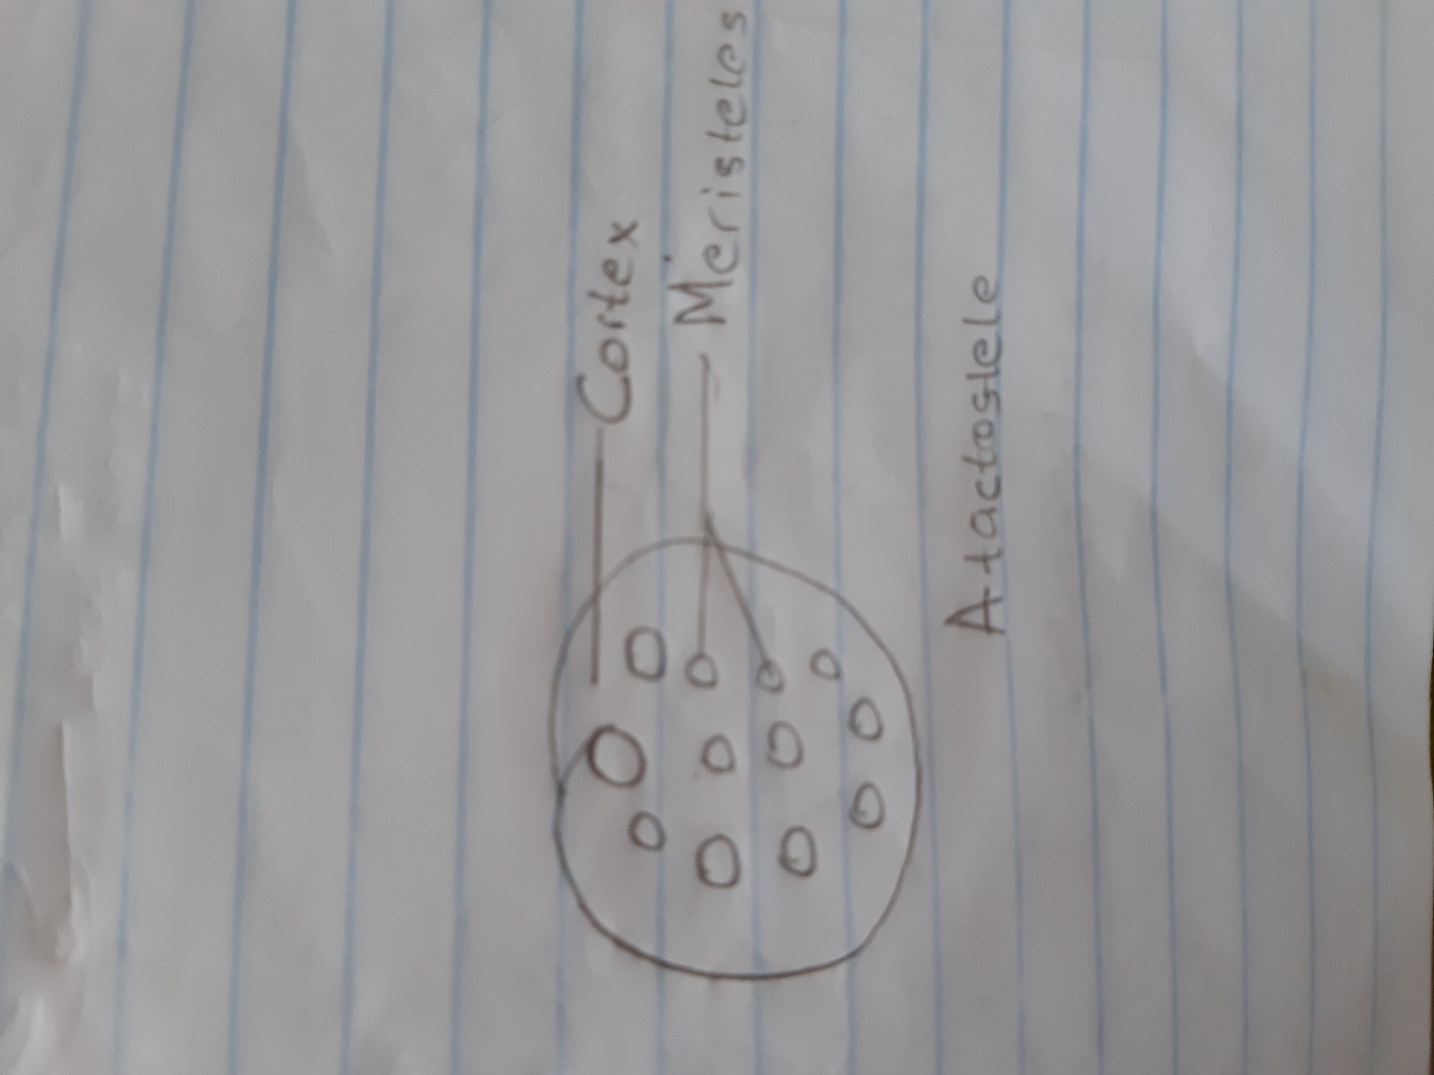 Cortex
Meristeles
Atactostele